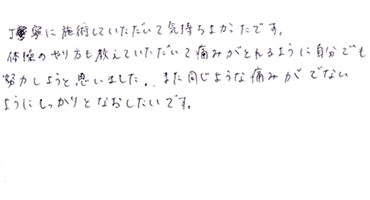 丁寧に施術していただいて気持ちよかったです。
体操のやり方も教えていただいて痛みがとれるように自分でも
努力しようと思いました。また同じような痛みがでない
ようにしっかりとなおしたいです。